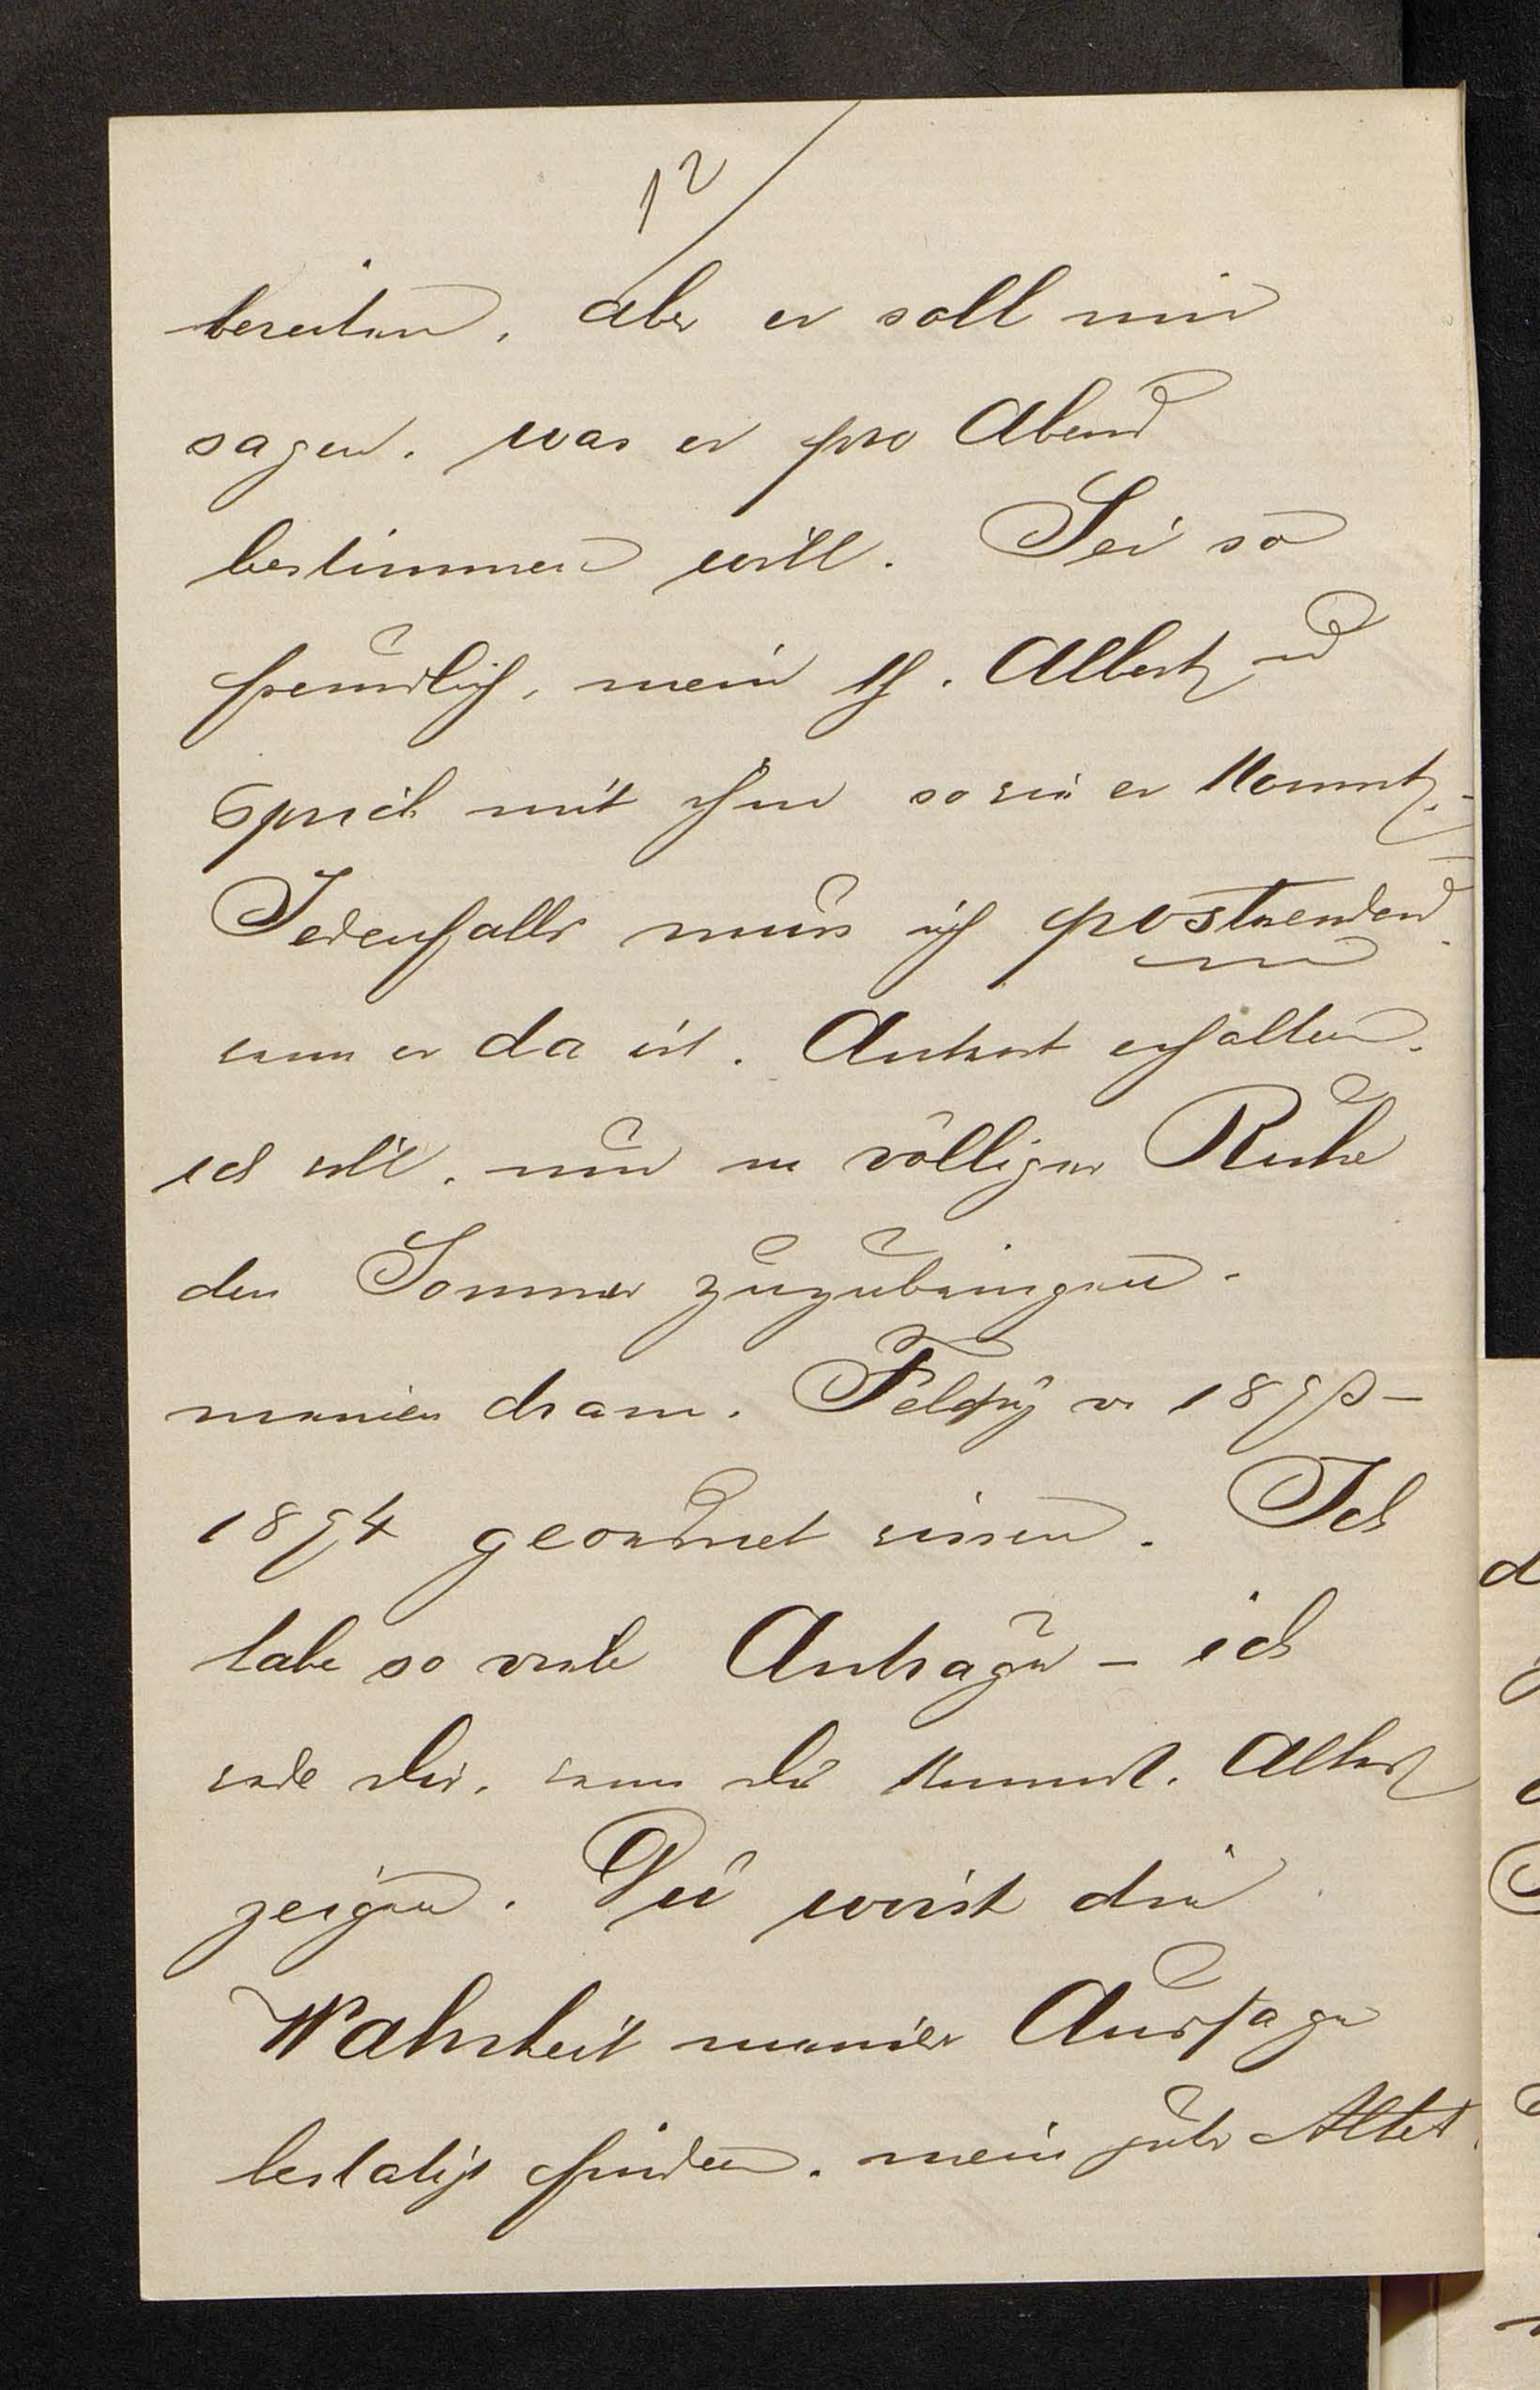 12/
bereiten, aber er soll mir
sagen, was er pro Abend
bestimmen will. Sei so
freundlich, mein lb. Albert und
sprich mit ihm so wie er kommt. -
Jedenfalls muss ich postwendend
wann er da ist. Antwort erhalten.
ich will, um in völliger Ruhe
den Sommer zuzubringen.
meinen dram. Feldzug v. 1873 -
1874 geordnet wissen. Ich
habe so viele Anträge - ich
werde dir, wenn du kommst. Albert
zeigen. Du wirst die
Wahrheit meiner Aussage
bestatigt finden, mein guter Albert.